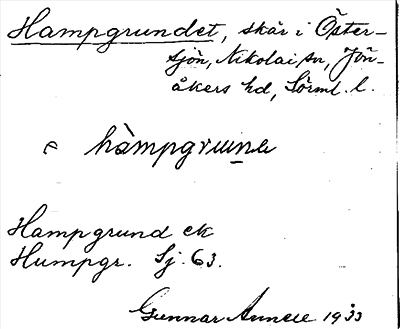 Hampgrundet, skär i Öster-
sjön, Nikolai sn, Jön-
åkers hd, Sörml. l.
hàmpgrunnə
Hampgrund ek
Humpgr. Sj. 63.
Gunnar 1933